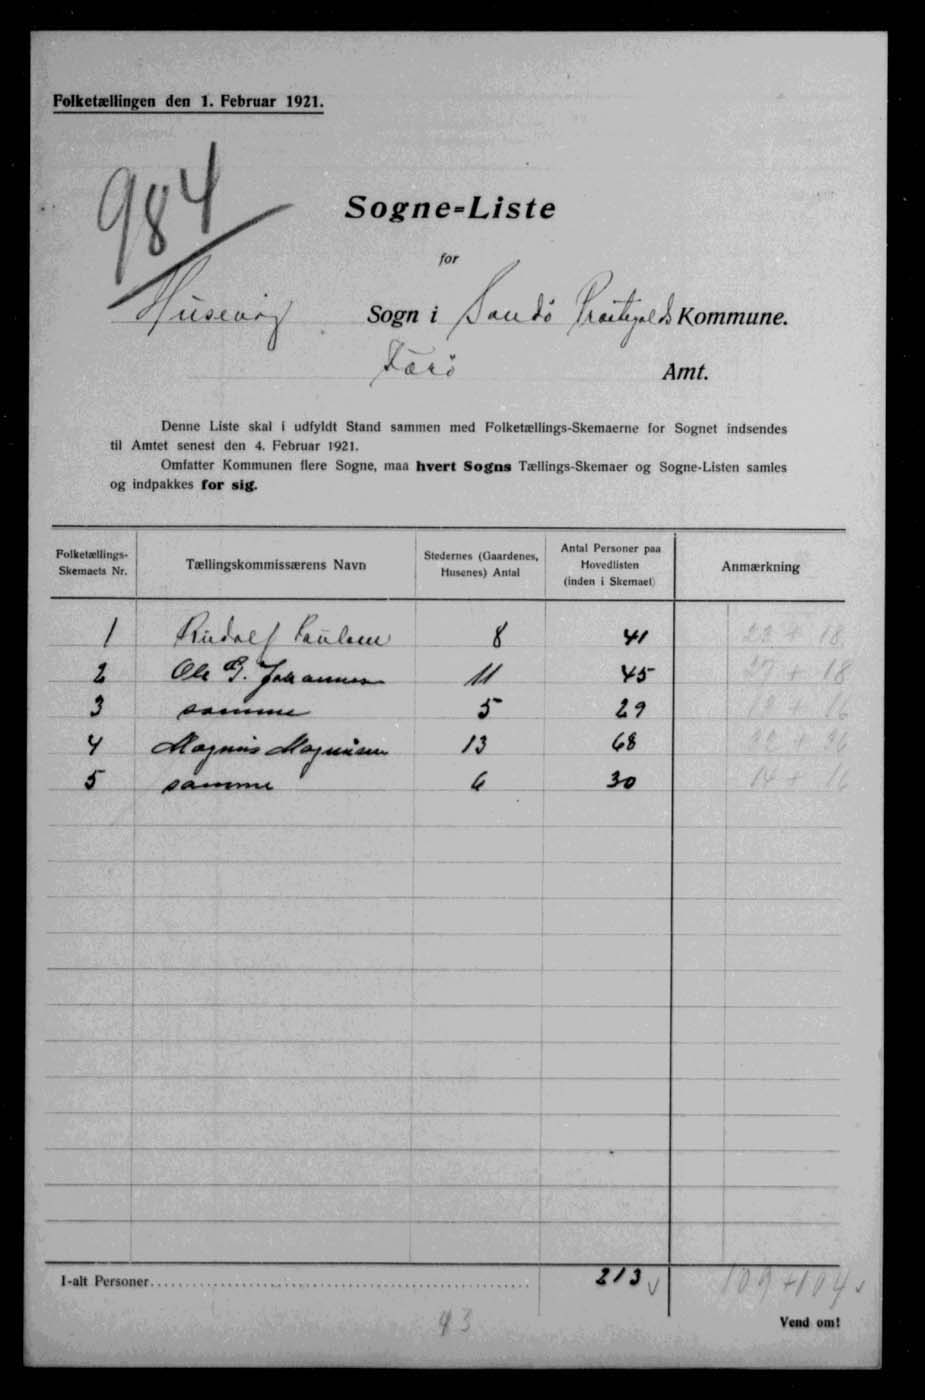 Folketællingen den 1. Februar 1921.
984
Sogne-Liste
for
Husevig Sogn i Sandø Præstegjelds Kommune.
Færø Amt.
Denne Liste skal i udfyldt Stand sammen med Folketællings-Skemaerne for Sognet indsendes
til Amtet senest den 4. Februar 1921.
Omfatter Kommunen flere Sogne, maa hvert Sogns Tællings-Skemaer og Sogne-Listen samles
og indpakkes for sig.
Folketællings-Skemaets Nr. Tællingskommissærens Navn Stedernes (Gaardenes, Husenes) Antal Antal Personer paa Hovedlisten (inden i Skemaet) Anmærkning
1 Rudolf Paulsen 8 41 + 18
2 Ole G. Johannesen 11 45 27 + 18
3 samme 5 29 + 16
4 Magnus Magnusen 13 68 +
5 samme 6 30 14 + 16
I-alt Personer 213 109 + 104
43
Vend om!